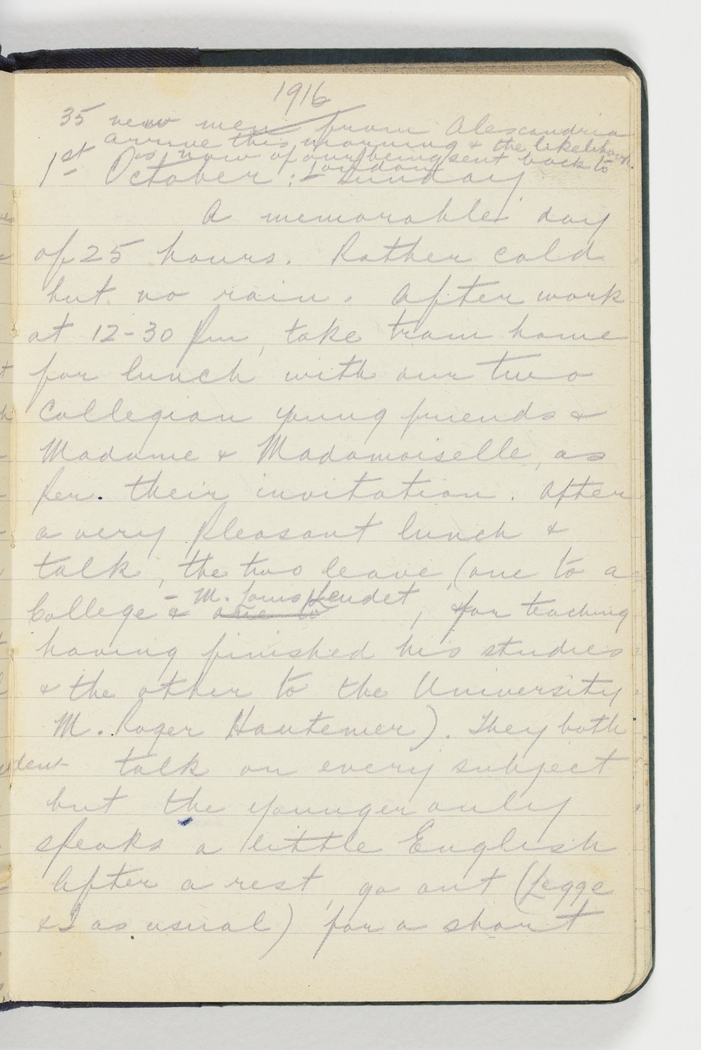 1916
35 new men from Alexandria
arrive this morning & the likelihood
is now of our being sent back to
London
1st October :- Sunday
A memorable day
of 25 hours. Rather cold
but no rain. After work
at 12-30 pm, take tram home
for lunch with our two
Collegian young friends &
Madame & Madamoiselle, as
per. their invitation. After
a very pleasant lunch &
talk, the two leave (one to a
College - M. Louis , for teaching
& one to
having finished his studies
& the other to the University
M. Roger Hautemer). They both
talk on every subject
but the younger only
speaks a little English
After a rest, go out (Legge
& I as usual) for a short